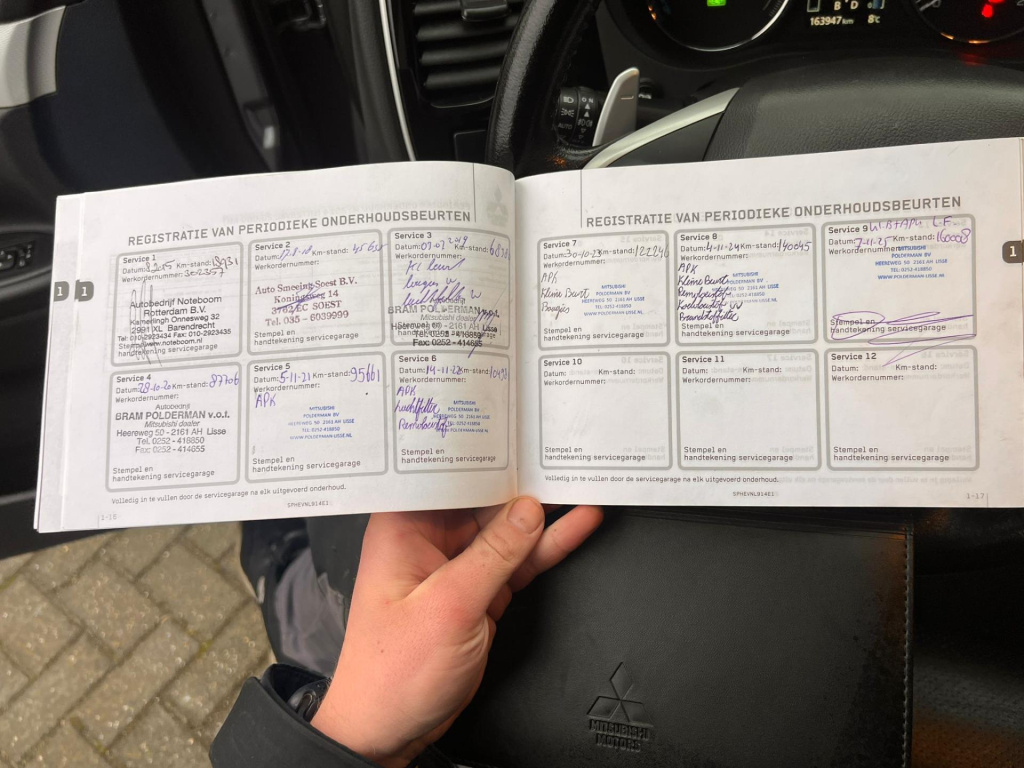 B D
163947 km 8°C
AUTO
REGISTRATIE VAN PERIODIEKE ONDERHOUDSBEURTEN
Service 1
Datum: Km-stand:
Werkordernummer:
Autobedrijf Noteboom
Rotterdam B.V.
Kamerlingh Onnesweg 32
2991 XL Barendrecht
Tel: 010-2923434 Fax: 010-2923435
www.noteboom.nl
handtekening servicegarage
Service 2
Datum: Km-stand:
Werkordernummer:
Auto Smeeing Soest B.V.
Koningsweg 14
3762 EC SOEST
Tel. 035 - 6039999
Stempel en
handtekening servicegarage
Service 3
Datum: Km-stand:
Werkordernummer:
BRAM POLDERMAN
Mitsubishi dealer
Heereweg 50 - 2161 AH Lisse
Fax: 0252 - 414655
Service 4
Datum: 28-10-20 Km-stand: 87706
Werkordernummer:
Autobedrijf
BRAM POLDERMAN v.o.f.
Mitsubishi dealer
Heereweg 50 - 2161 AH Lisse
Tel. 0252 - 418850
Fax: 0252 - 414655
Stempel en
handtekening servicegarage
Service 5
Datum: 5-11-21 Km-stand: 95661
Werkordernummer:
APK
MITSUBISHI
POLDERMAN BV
HEEREWEG 50 2161 AH LISSE
TEL: 0252-418850
WWW.POLDERMAN-LISSE.NL
Stempel en
handtekening servicegarage
Service 6
Datum: 14-11-22 Km-stand:
Werkordernummer:
APK
Luchtfilter
Remvloeistof
MITSUBISHI
POLDERMAN BV
HEEREWEG 50 2161 AH LISSE
TEL: 0252-418850
WWW.POLDERMAN-LISSE.NL
Stempel en
handtekening servicegarage
Volledig in te vullen door de servicegarage na elk uitgevoerd onderhoud.
SPHEVNL914E1
1-16
1
1
REGISTRATIE VAN PERIODIEKE ONDERHOUDSBEURTEN
Service 7
Datum: 30-10-23 Km-stand: 122246
Werkordernummer:
APK
Kleine Beurt
Bougies
MITSUBISHI
POLDERMAN BV
HEEREWEG 50 2161 AH LISSE
TEL: 0252-418850
WWW.POLDERMAN-LISSE.NL
Stempel en
handtekening servicegarage
Service 8
Datum: 4-11-24 Km-stand: 140045
Werkordernummer:
APK
Kleine Beurt
Remvloeistof
Koelvloeistof
Brandstoffilter
MITSUBISHI
POLDERMAN BV
HEEREWEG 50 2161 AH LISSE
TEL: 0252-418850
WWW.POLDERMAN-LISSE.NL
Stempel en
handtekening servicegarage
Service 9
Datum: 7-11-25 Km-stand: 160008
Werkordernummer:
MITSUBISHI
POLDERMAN BV
HEEREWEG 50 2161 AH LISSE
TEL: 0252-418850
WWW.POLDERMAN-LISSE.NL
Stempel en
handtekening servicegarage
Service 10
Datum: Km-stand:
Werkordernummer:
Stempel en
handtekening servicegarage
Service 11
Datum: Km-stand:
Werkordernummer:
Stempel en
handtekening servicegarage
Service 12
Datum: Km-stand:
Werkordernummer:
Stempel en
handtekening servicegarage
Volledig in te vullen door de servicegarage na elk uitgevoerd onderhoud.
SPHEVNL914E1
1-17
1
MITSUBISHI
MOTORS